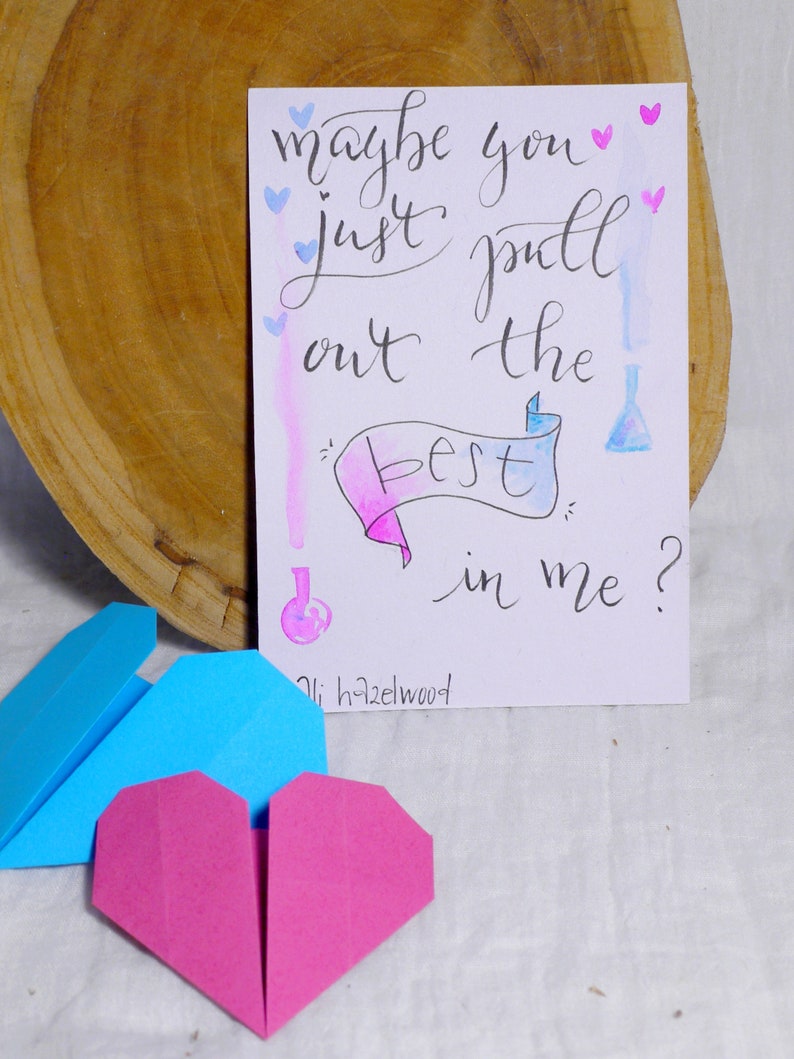 maybe you
just pull
out the
best
in me?
ali hazelwood